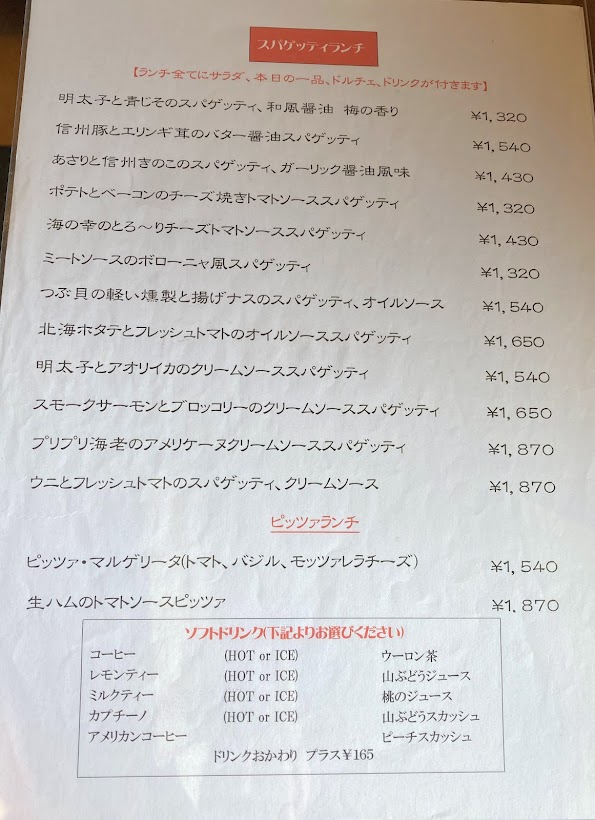 スパゲッティランチ
【ランチ全てにサラダ、本日の一品、ドルチェ、ドリンクが付きます】
明太子と青じそのスパゲッティ、和風醤油 梅の香り ¥1,320
信州豚とエリンギ茸のバター醤油スパゲッティ ¥1,540
あさりと信州きのこのスパゲッティ、ガーリック醤油風味 ¥1,430
ポテトとベーコンのチーズ焼きトマトソーススパゲッティ ¥1,320
海の幸のとろ～りチーズトマトソーススパゲッティ ¥1,430
ミートソースのボローニャ風スパゲッティ ¥1,320
つぶ貝の軽い燻製と揚げナスのスパゲッティ、オイルソース ¥1,540
北海ホタテとフレッシュトマトのオイルソーススパゲッティ ¥1,650
明太子とアオリイカのクリームソーススパゲッティ ¥1,540
スモークサーモンとブロッコリーのクリームソーススパゲッティ ¥1,650
プリプリ海老のアメリケーヌクリームソーススパゲッティ ¥1,870
ウニとフレッシュトマトのスパゲッティ、クリームソース ¥1,870
ピッツァランチ
ピッツァ・マルゲリータ(トマト、バジル、モッツァレラチーズ) ¥1,540
生ハムのトマトソースピッツァ ¥1,870
ソフトドリンク(下記よりお選びください)
コーヒー (HOT or ICE) ウーロン茶
レモンティー (HOT or ICE) 山ぶどうジュース
ミルクティー (HOT or ICE) 桃のジュース
カプチーノ (HOT or ICE) 山ぶどうスカッシュ
アメリカンコーヒー ピーチスカッシュ
ドリンクおかわり プラス¥165